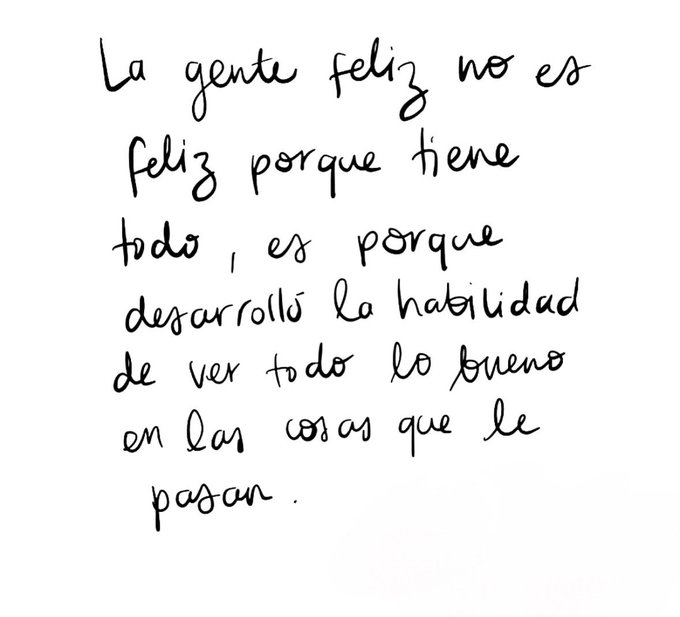 La gente feliz no es
feliz porque tiene
todo, es porque
desarrolló la habilidad
de ver todo lo bueno
en las cosas que le
pasan.